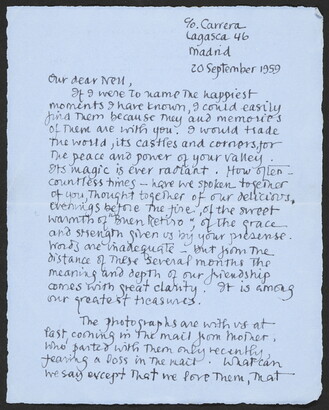 c/o. Carrera
Lagasca 46
Madrid
20 September 1959
Our dear Nell,
If I were to name the happiest
moments I have known, I could easily
find them because they and memories
of them are with you. I would trade
the world, its castles and corners, for
the peace and power of your valley.
Its magic is ever radiant. How often –
countless times – have we spoken together
of you, thought together of our delicious,
evenings before the fire, of the sweet
warmth of "Buen Retiro", of the grace
and strength given us by your presense.
Words are inadequate – but from the
distance of these several months the
meaning and depth of our friendship
comes with great clarity. It is among
our greatest treasures.
The photographs are with us at
last, coming in the mail from Mother,
who parted with them only recently,
fearing a loss in the mail. What can
we say except that we love them, that